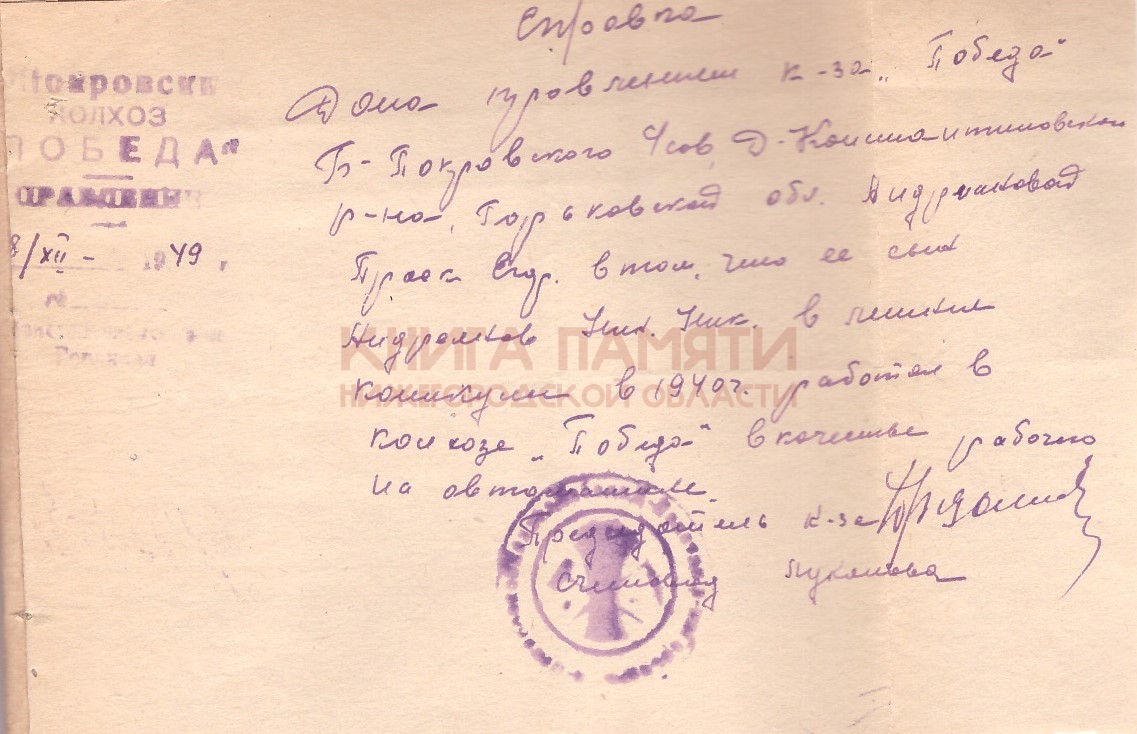 Справка
Покровский
КОЛХОЗ
ПОБЕДА"
ПРАВЛЕНИЕ
8/XII - 1949 г.
№
Дана правлением к-за „Победа"
Б-Покровского с/сов, Д-Константиновского
р-на, Горьковской обл. Андриановой
Праск Егор. в том, что ее сын
Ник. Ник. в летние
каникулы в 1940 г. работал в
колхозе „Победа" в качестве рабочего
на автомашине.
Председатель к-за
Счетовод Луконьва
КНИГА ПАМЯТИ
НИЖЕГОРОДСКОЙ ОБЛАСТИ